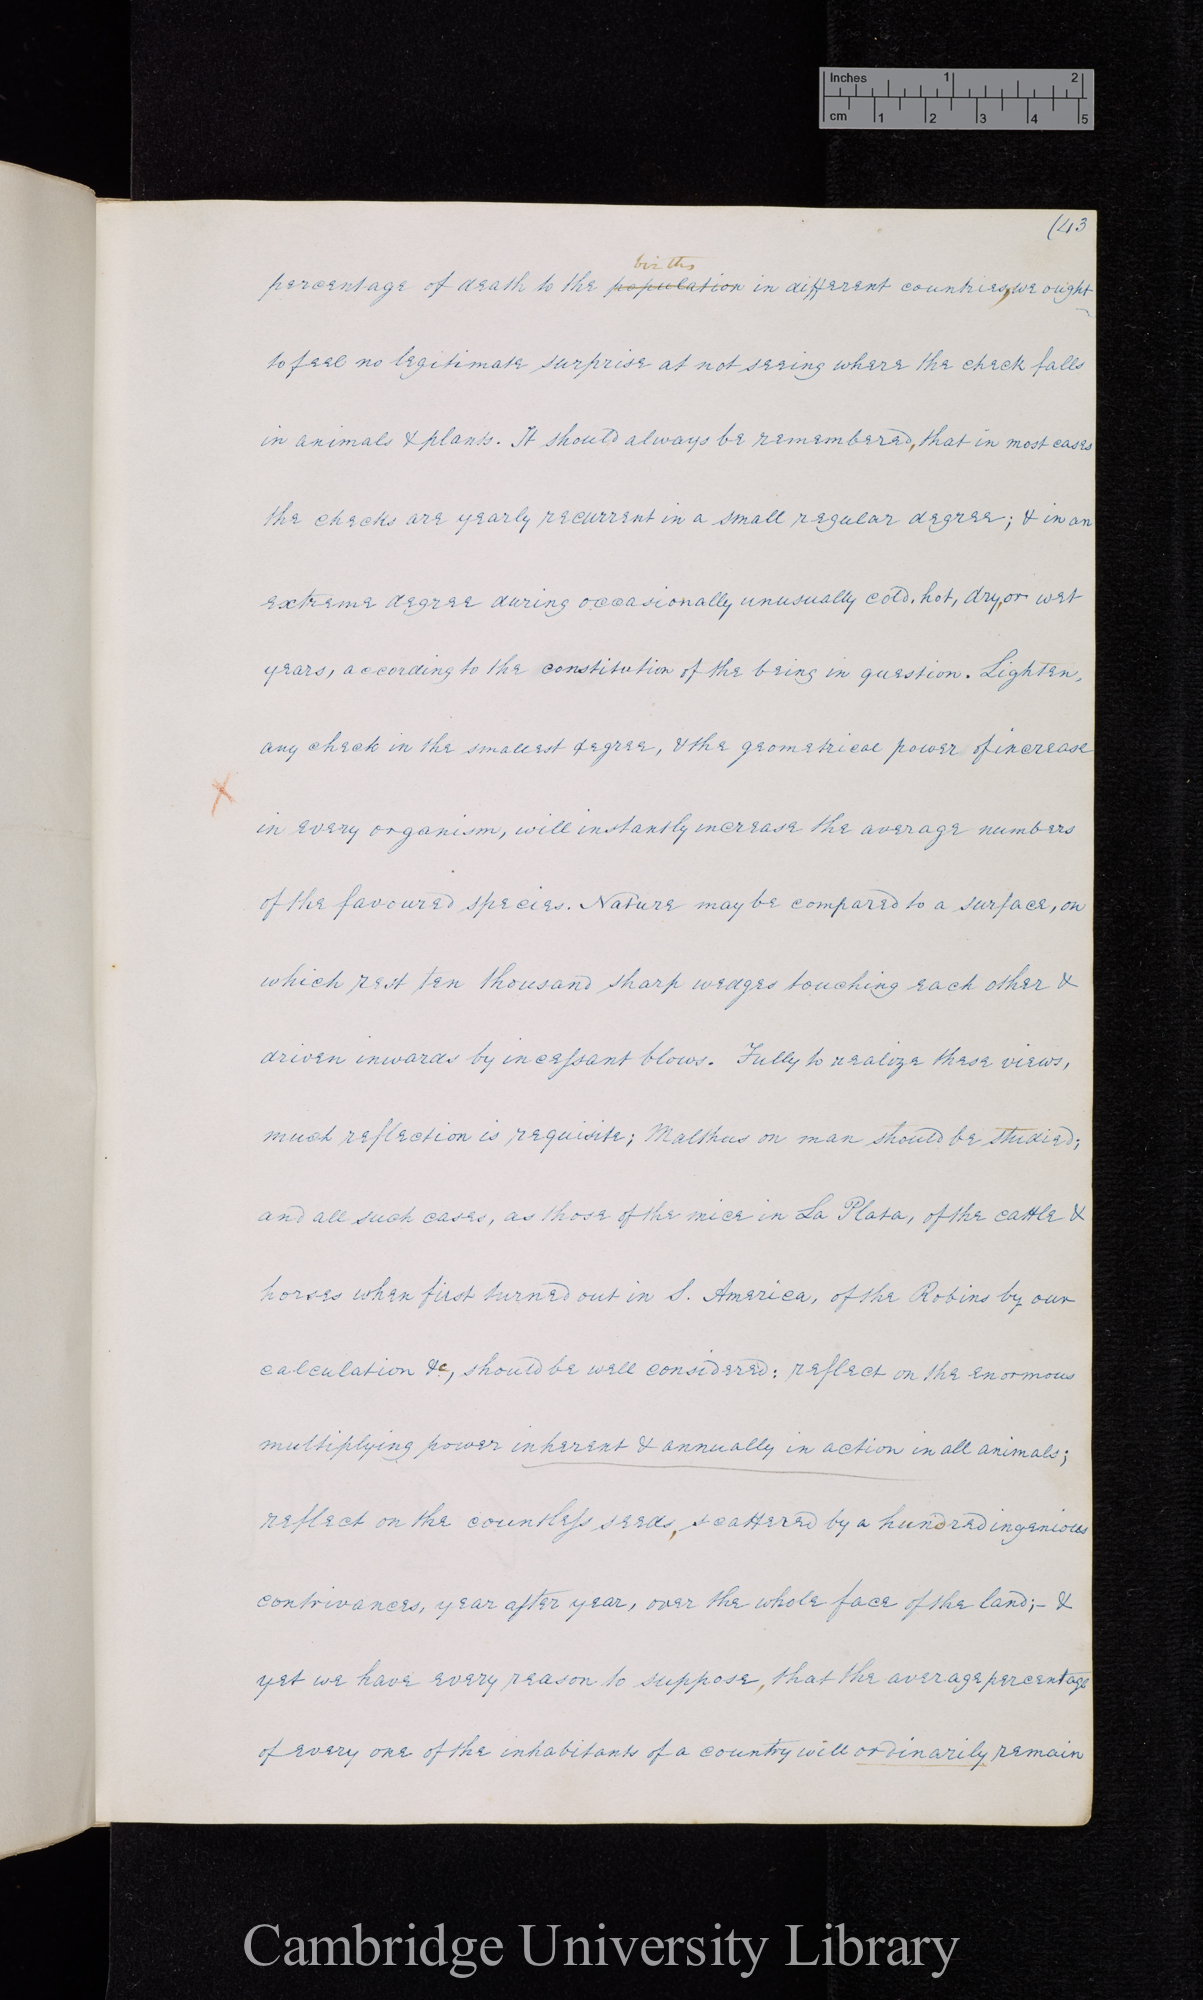 Inches 1 2
cm 1 2 3 4 5
(143
births
percentage of death to the population in different countries, we ought
to feel no legitimate surprise at not seeing where the check falls
in animals & plants. It should always be remembered, that in most cases
the checks are yearly recurrent in a small regular degree; & in an
extreme degree during occasionally unusually cold, hot, dry, or wet
years, according to the constitution of the being in question. Lighten,
any check in the smallest degree, & the geometrical power of increase
in every organism, will instantly increase the average numbers
of the favoured species. Nature may be compared to a surface, on
which rest ten thousand sharp wedges touching each other &
driven inwards by incessant blows. Fully to realize these views,
much reflection is requisite; Malthus on man should be studied;
and all such cases, as those of the mice in La Plata, of the cattle &
horses when first turned out in S. America, of the Robins by our
calculation &c, should be well considered: reflect on the enormous
multiplying power inherent & annually in action in all animals;
reflect on the countless seeds, scattered by a hundred ingenious
contrivances, year after year, over the whole face of the land;- &
yet we have every reason to suppose, that the average percentage
of every one of the inhabitants of a country will ordinarily remain
Cambridge University Library